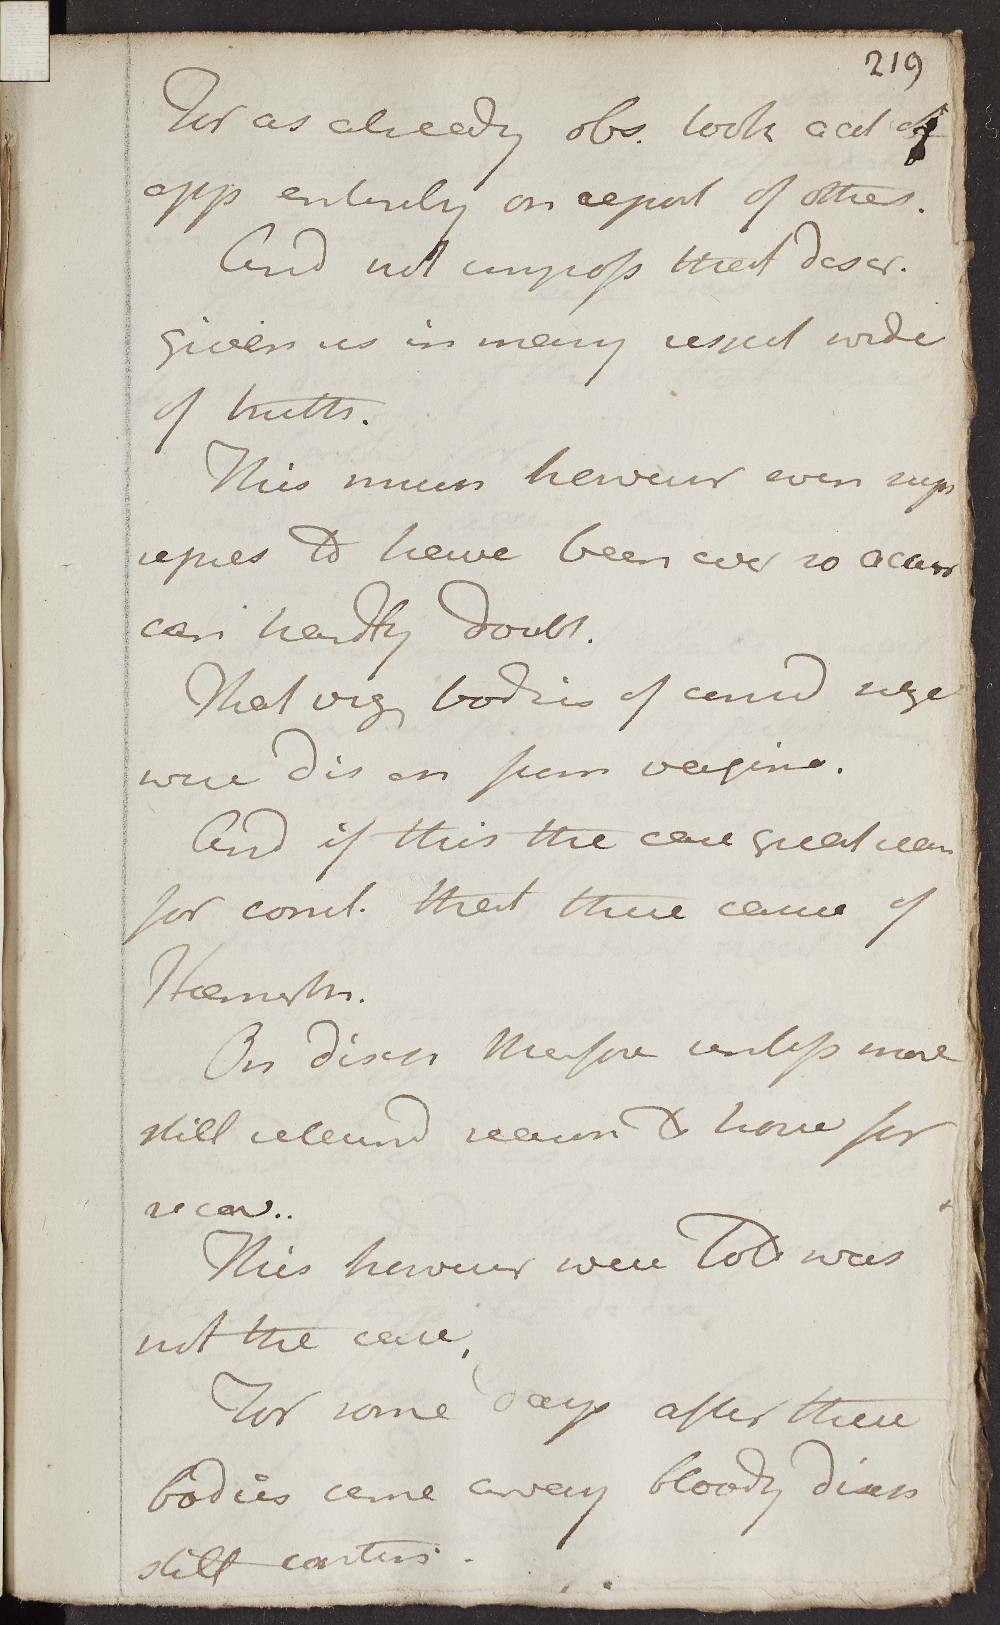 219
For as already obs. took acct of
app entirely on report of others.
And not imposs that descr.
given us in many respect wide
of truth.
This muco however even supp
repres to have been ever so accur
can hardly doubt.
That org bodies of consid size
were dis on from vagina.
And if this the case great reason
for concl. that these cause of
Haemorh.
On disch therefore unless more
still retained reason to hope for
recov..
This however were told was
not the case.
For some days after these
bodies came away bloody disch
still contin.